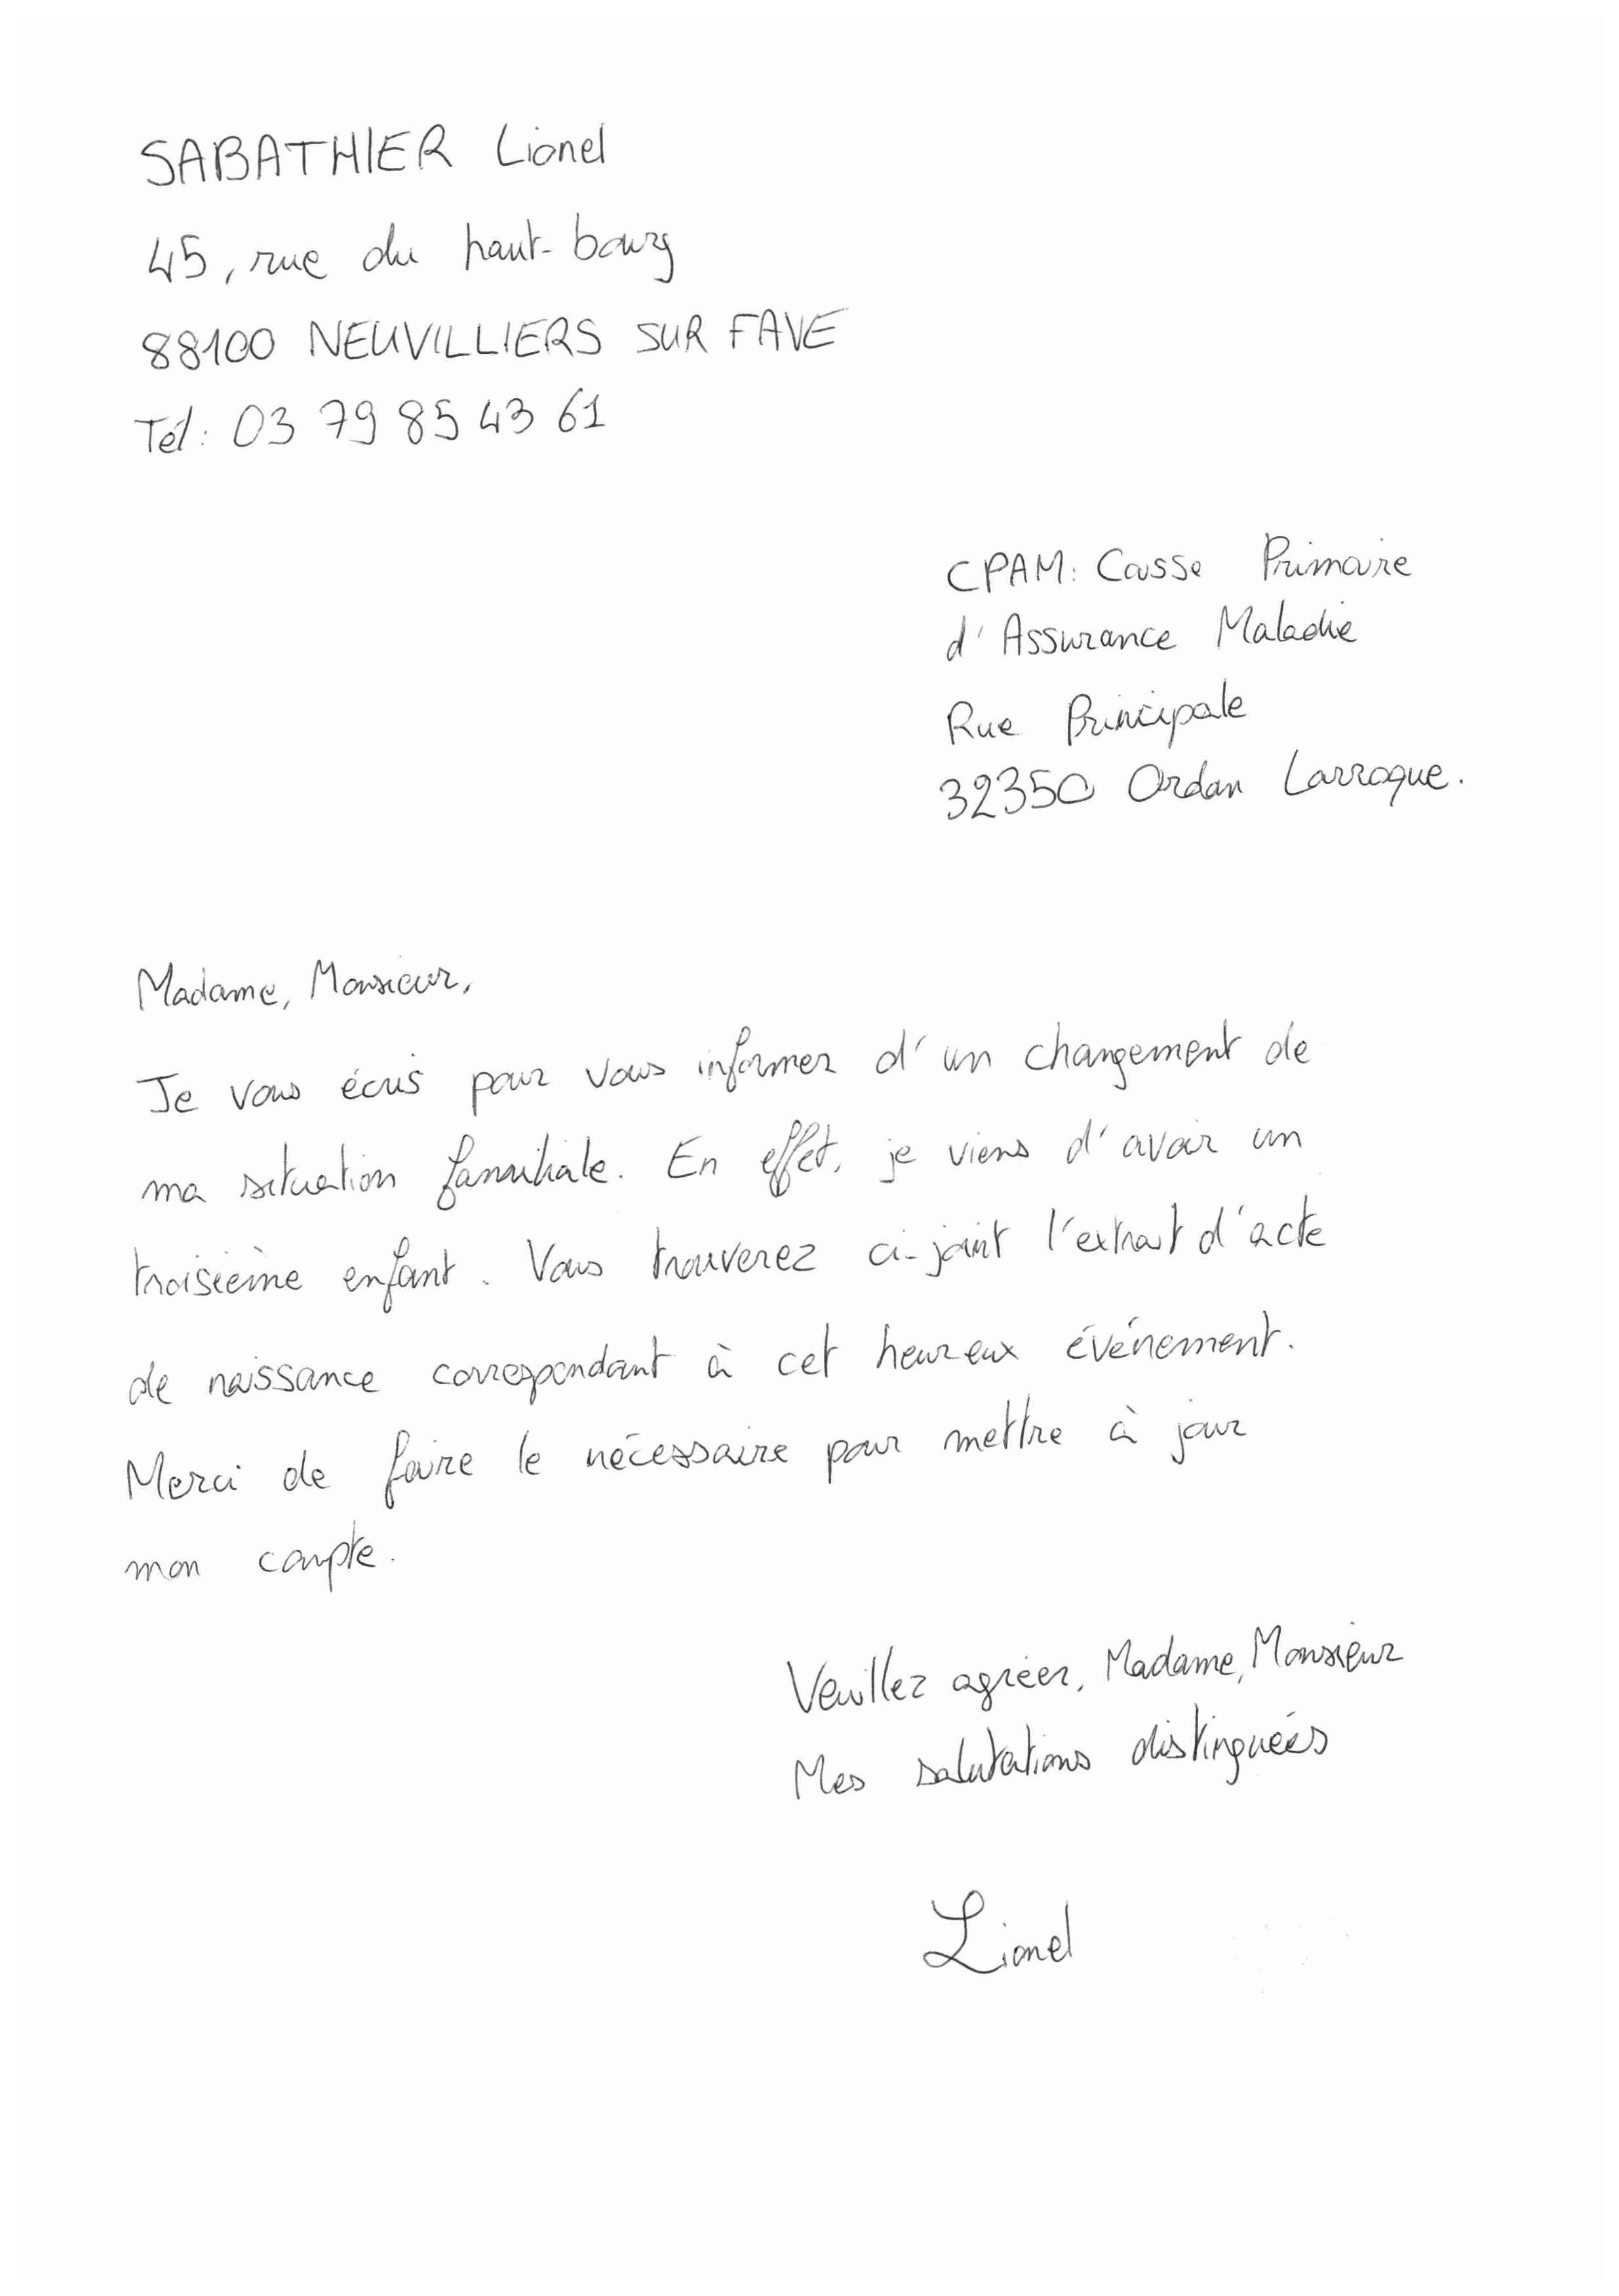 SABATHIER Lionel
45, rue du haut-bourg
88100 NEUVILLIERS SUR FAVE
Tél : 03 79 85 43 61
CPAM : Caisse Primaire
d'Assurance Maladie
Rue Principale
32350 Ordan Larroque.
Madame, Monsieur,
Je vous écris pour vous informer d'un changement de
ma situation familiale. En effet, je viens d'avoir un
troisième enfant. Vous trouverez ci-joint l'extrait d'acte
de naissance correspondant à cet heureux événement.
Merci de faire le nécessaire pour mettre à jour
mon compte.
Veuillez agréer, Madame, Monsieur
Mes salutations distinguées
Lionel